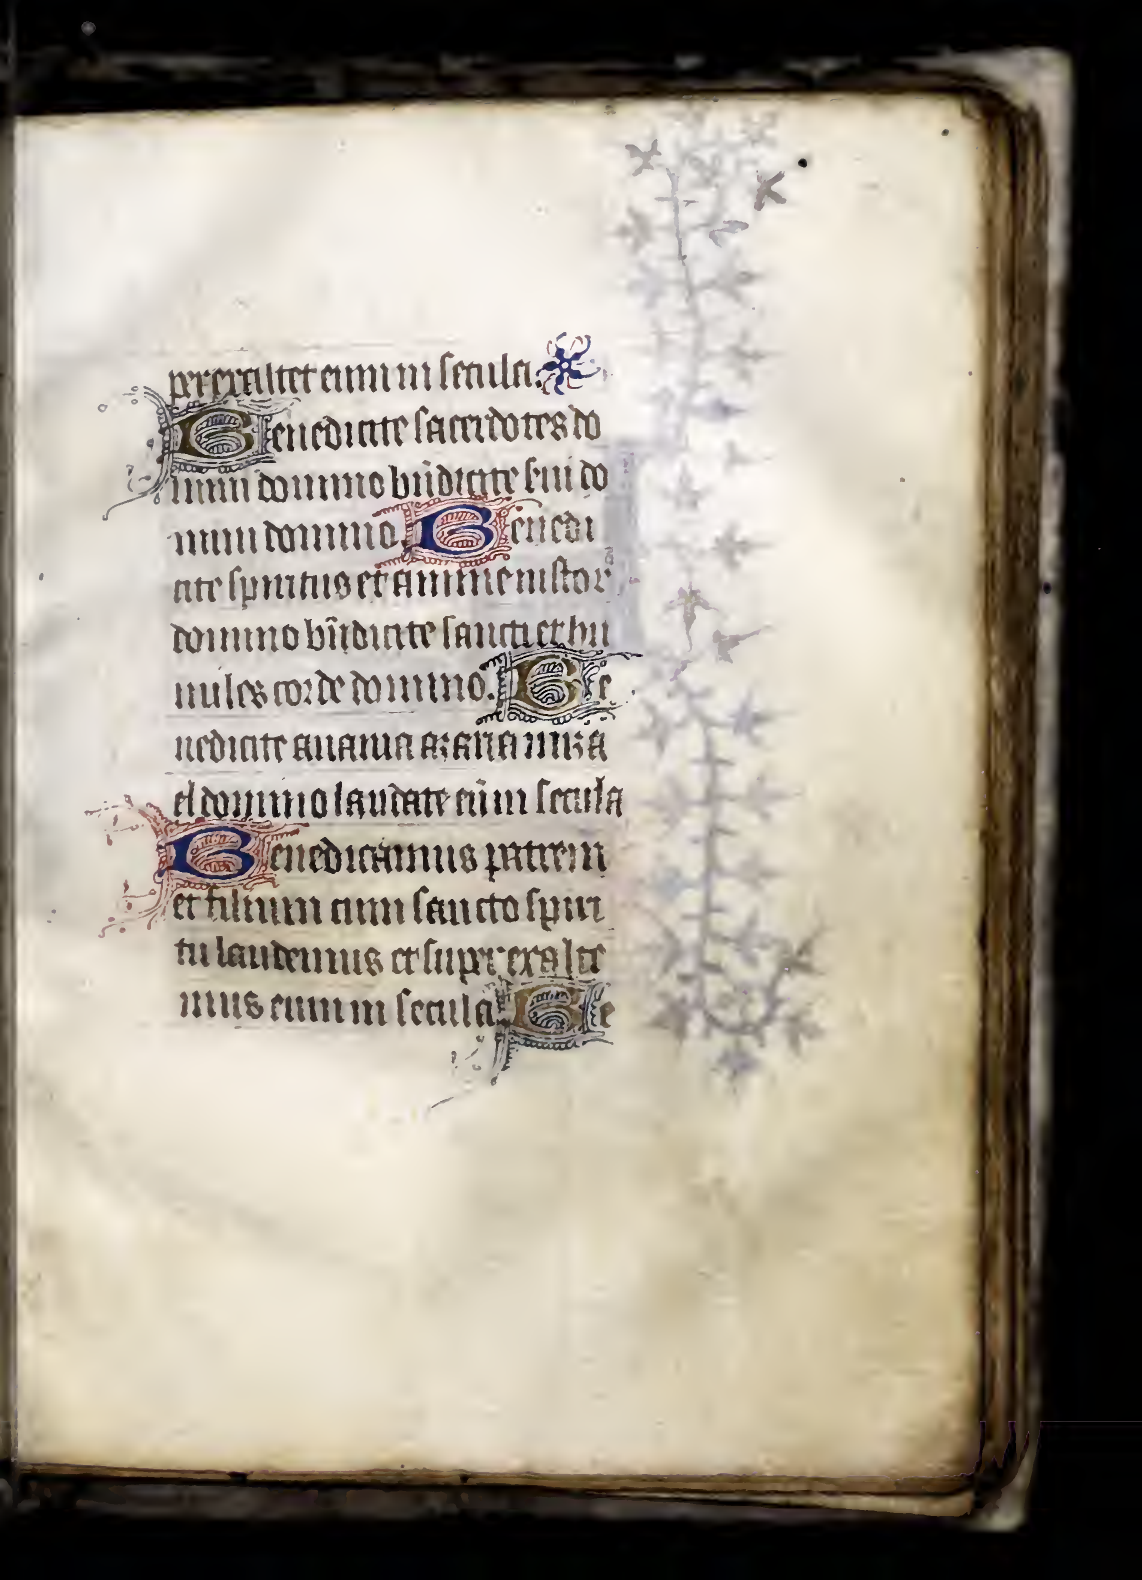 perexaltet eum in secula.
Benedicite sacerdotes do
mini domino bn̄dicite serui do
mini domino. Benedi
cite spiritus et anime iustor
domino bn̄dicite sancti et hu
miles corde domino. Be
nedicite anania azaria miza
el domino laudate eū in secula
Benedicamus patrem
et filium cum sancto spiri
tu laudemus et superexalte
mus eum in secula. Be